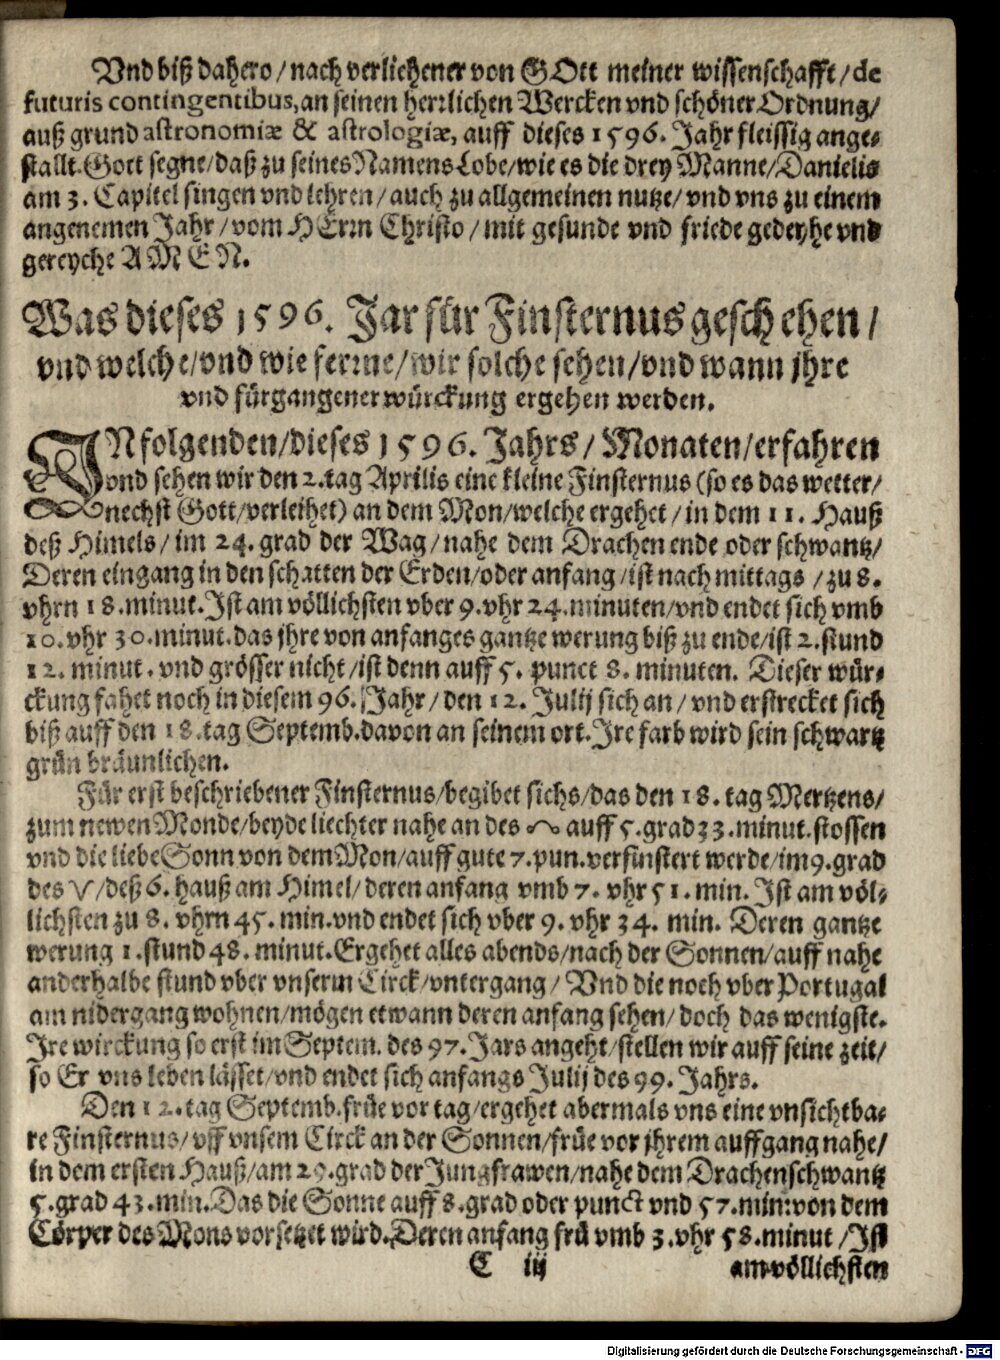 Vnd biß dahero / nach verliehener von GOtt meiner wissenschafft / de
futuris contingentibus, an seinen herzlichen Wercken vnd schöner Ordnung /
auß grund astronomiæ & astrologiæ, auff dieses 1596. Jahr fleissig ange⸗
stallt. Gott segne / daß zu seines Namens Lobe / wie es die drey Manne / Danielis
am 3. Capitel singen vnd lehren / auch zu allgemeinen nutze / vnd vns zu einem
angenemen Jahr / vom HErrn Christo / mit gesunde vnd friede gedeyhe vnd
gereyche AMEN.
Was dieses 1596. Jar für Finsternus gesch ehen /
vnd welche / vnd wie ferrne / wir solche sehen / vnd wann jhre
vnd fürgangener würckung ergehen werden.
IN folgenden / dieses 1596. Jahrs / Monaten / erfahren
vnd sehen wir den 2. tag Aprilis eine kleine Finsternus (so es das wetter /
nechst Gott / verleihet) an dem Mon / welche ergehet / in dem 11. Hauß
deß Himels / im 24. grad der Wag / nahe dem Drachen ende oder schwantz /
Deren eingang in den schatten der Erden / oder anfang / ist nach mittags / zu 8.
vhrn 18. minut. Ist am völlichsten vber 9. vhr 24. minuten / vnd endet sich vmb
10. vhr 30. minut. das jhre von anfanges gantze werung biß zu ende / ist 2. stund
12. minut. vnd grösser nicht / ist denn auff 5. punct 8. minuten. Dieser wür⸗
ckung fahet noch in diesem 96. Jahr / den 12. Julij sich an / vnd erstrecket sich
biß auff den 18. tag Septemb. davon an seinem ort. Ire farb wird sein schwartz
grün bräunlichen.
Für erst beschriebener Finsternus / begibet sichs / das den 18. tag Mertzens /
zum newen Monde / beyde liechter nahe an des ☊ auff 5. grad 33. minut. stossen
vnd die liebe Sonn von dem Mon / auff gute 7. pun. verfinstert werde / im 9. grad
des ♈ / deß 6. hauß am Himel / deren anfang vmb 7. vhr 51. min. Ist am völ⸗
lichsten zu 8. vhrn 45. min. vnd endet sich vber 9. vhr 34. min. Deren gantze
werung 1. stund 48. minut. Ergehet alles abends / nach der Sonnen / auff nahe
anderhalbe stund vber vnserm Circk / vntergang / Vnd die noch vber Portugal
am nidergang wohnen / mögen etwann deren anfang sehen / doch das wenigste.
Ire wirckung so erst im Septem. des 97. Jars angeht / stellen wir auff seine zeit /
so Er vns leben lässet / vnd endet sich anfangs Julij des 99. Jahrs.
Den 12. tag Septemb. früe vor tag / ergehet abermals vns eine vnsichtba⸗
re Finsternus / vff vnsem Circk an der Sonnen / früe vor jhrem auffgang nahe /
in dem ersten Hauß / am 29. grad der Jungfrawen / nahe dem Drachenschwantz
5. grad 43. min. Das die Sonne auff 8. grad oder punct vnd 57. min: von dem
Cörper des Mons vorsetzet wird. Deren anfang frü vmb 3. vhr 58. minut / Ist
C iij am völlichsten
Digitalisierung gefördert durch die Deutsche Forschungsgemeinschaft - DFG